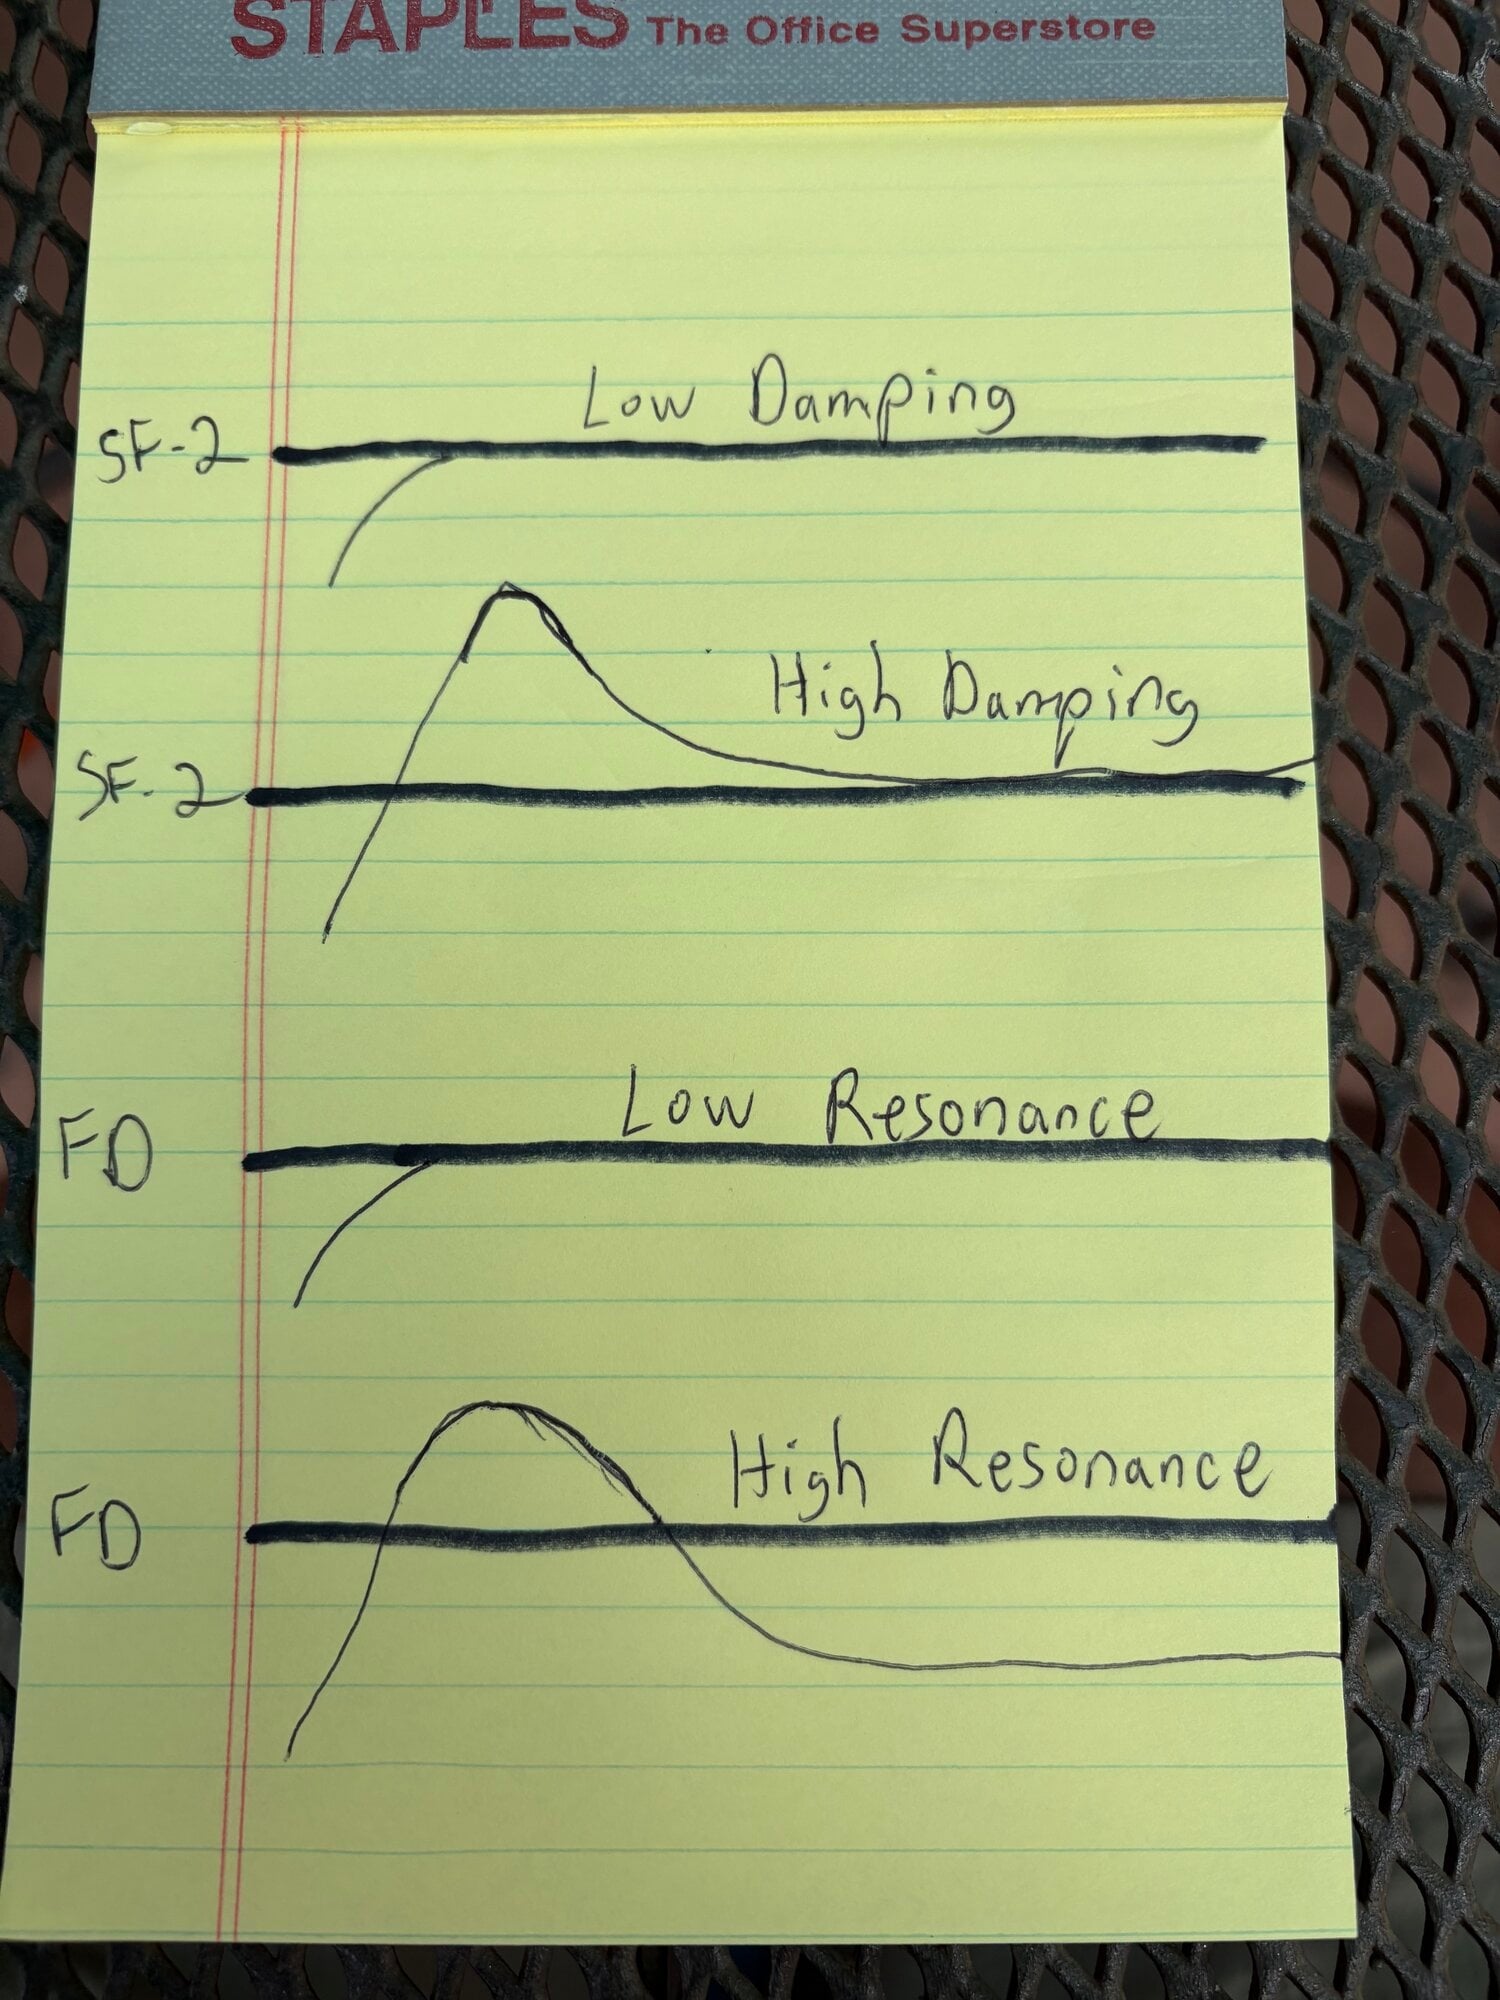 STAPLES The Office Superstore
Low Damping
SF-2
High Damping
SF-2
Low Resonance
FD
High Resonance
FD